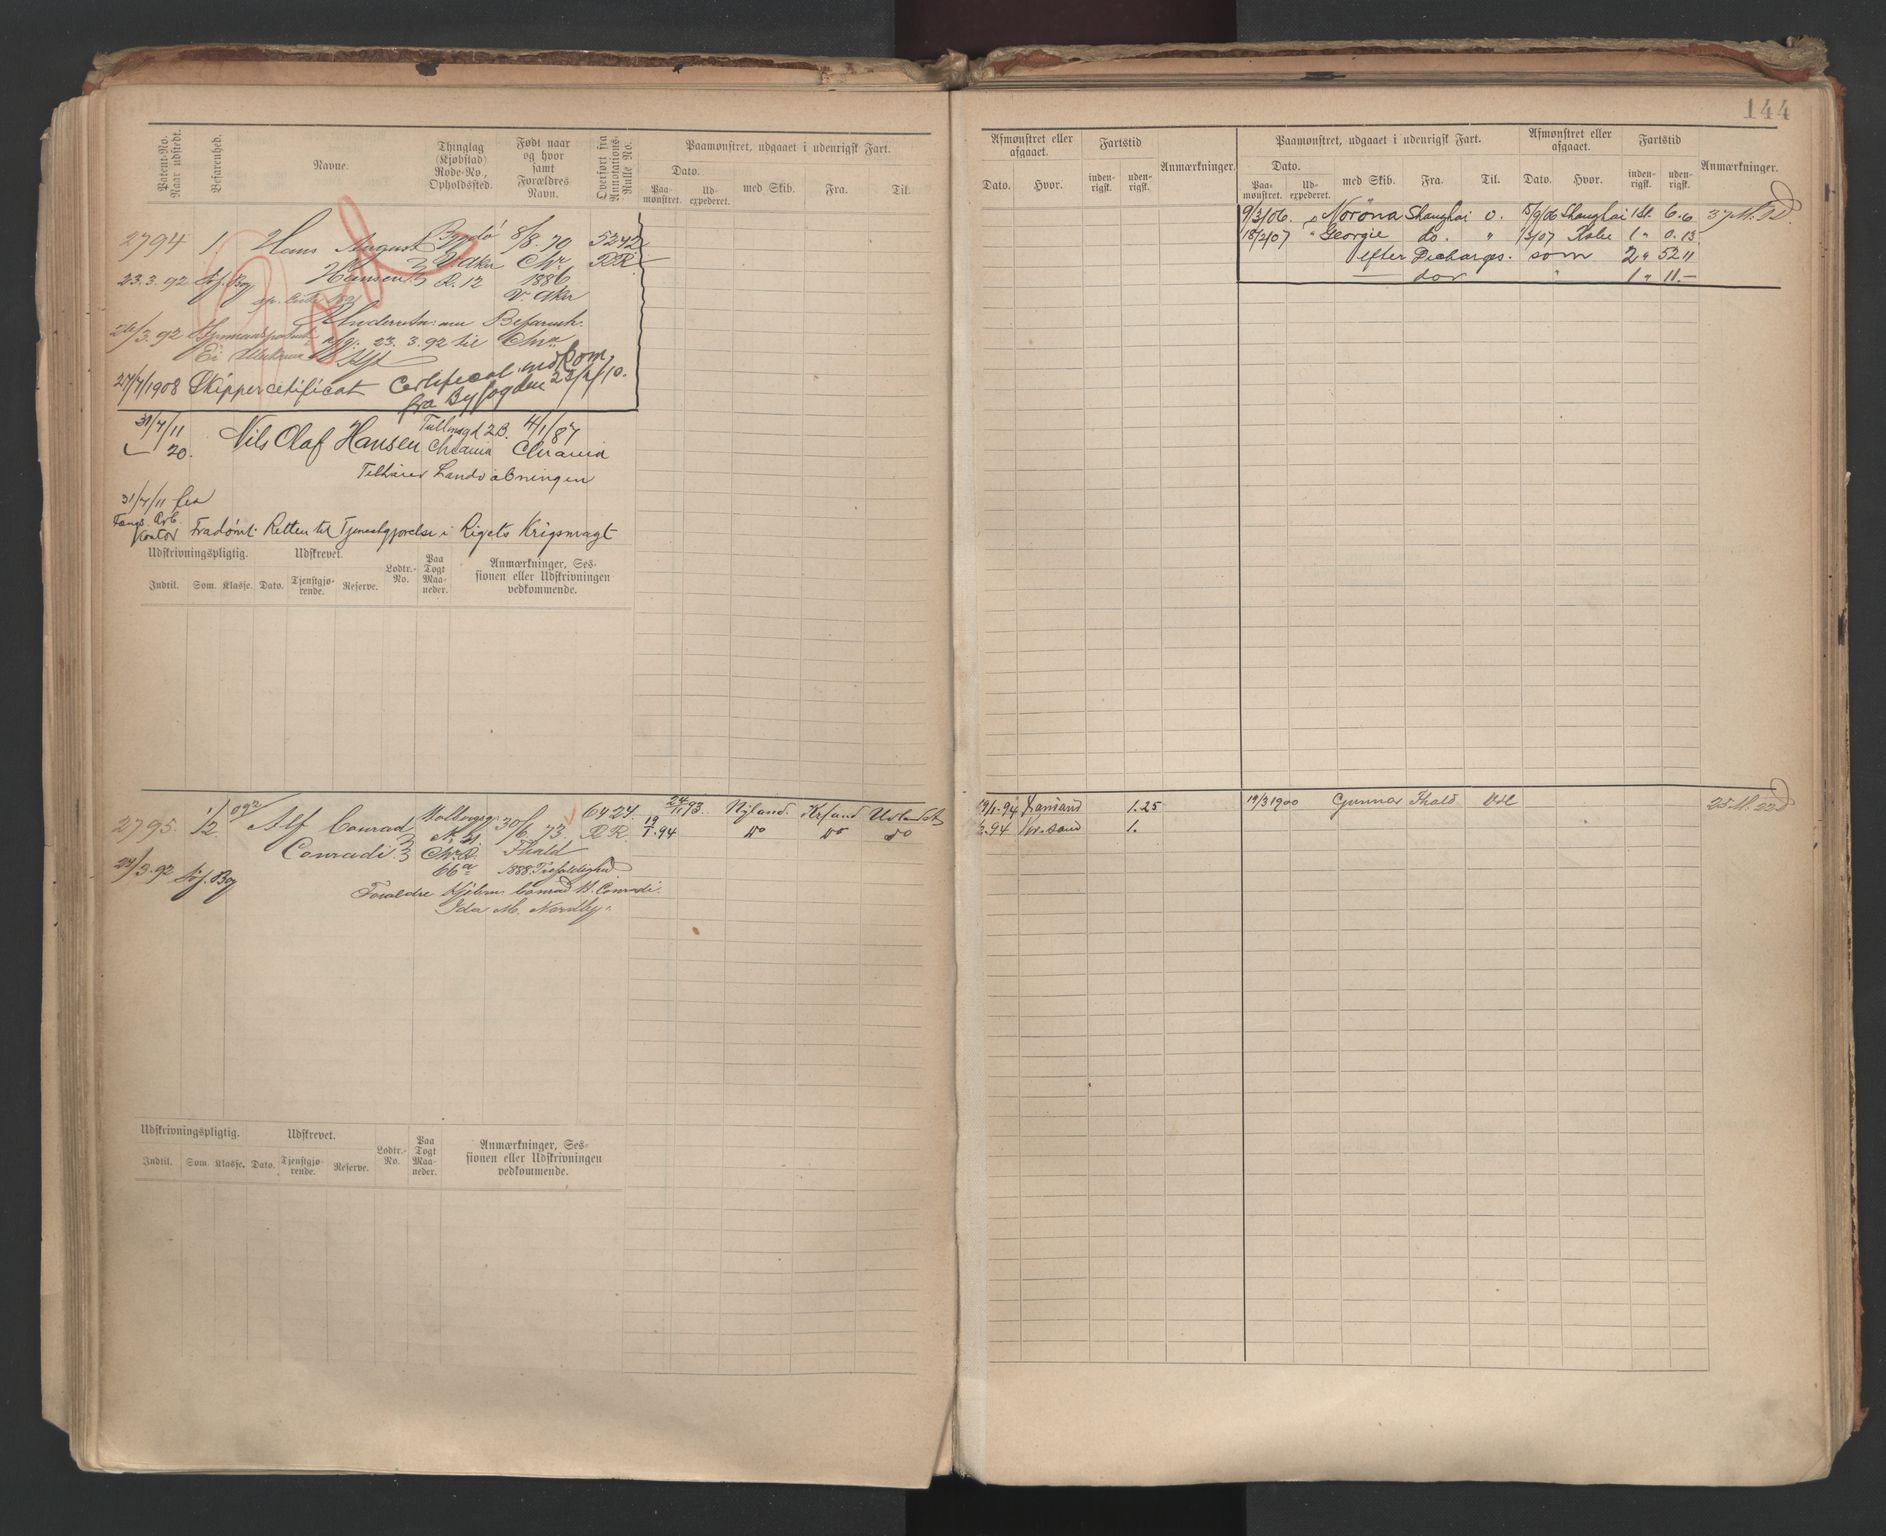 144
Patent-No. Naar udstedt.
Befarenhed.
Navne.
Thinglag (Kjøbstad) Rode-No., Opholdssted.
Født naar og hvor samt Forældres Navn.
Overført fra Annotations-Rulle No.
Paamønstret, udgaaet i udenrigsk Fart.
Dato.
Paamønstret.
Udexpederet.
med Skib.
Fra.
Til.
Afmønstret eller afgaaet.
Fartstid
Dato.
Hvor.
indenrigsk.
udenrigsk.
Anmærkninger.
Paamønstret, udgaaet i udenrigsk Fart.
Afmønstret eller afgaaet.
Fartstid
Dato.
Paamønstret.
Udexpederet.
med Skib.
Fra.
Til.
Dato.
Hvor.
indenrigsk.
udenrigsk.
Anmærkninger.
2794 1 Hans August Bygdø 8/8. 70 5242
Hansen V. Aker Chr. RR
23.3.92 R. 12 1886
V. Aker
9/3/06. Norøna Shanghai 15/9/06 Shanghai 1 St. 6. 6
18/2/07 " Georgie do. " 1/3/07 Kobe 1 " 0. 13.
efter Discharges. som 2 " 52 11
1 " 11 -
26/3.92 Underretn. 23.3.92 til Chra
27/7/1908 Skippercertificat Certificat indkom
fra Byfogden 22/2/10.
31/7/11 Nils Olaf Hansen Tullinsgd 2B. 4/1/87
20. Chrania Chrania
Tilhører Landvæbningen
31/7/11 fra
Fangs. Arb.
Kontor Fradømt Retten til Tjenestgjørelse i Rigets Krigsmagt
Udskrivningspligtig.
Udskrevet.
Indtil.
Som.
Klasse.
Dato.
Tjenstgjørende.
Reserve.
Lodtr.-No.
Paa Togt Maaneder.
Anmærkninger, Sessionen eller Udskrivningen vedkommende.
2795. 1/2 Alf Conrad Holbergsg. 30/6. 73. 6424. 24/1 93. Nyland. Krsand Udlandet
Conradi Chr.a Fhald RR. 19/1.94 do do do
66a 1888. Trefoldighed
24/3.92
Forældre Conrad H. Conradi
Ida M. Nordby.
19/1.94 1.25
19/3 1900 Gunnar Fhald
1.
Udskrivningspligtig.
Udskrevet.
Indtil.
Som.
Klasse.
Dato.
Tjenstgjørende.
Reserve.
Lodtr.-No.
Paa Togt Maaneder.
Anmærkninger, Sessionen eller Udskrivningen vedkommende.